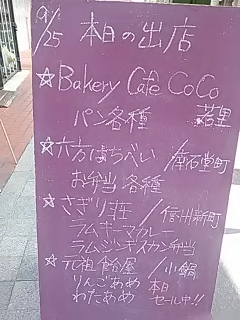 9/25 本日の出店
☆Bakery Cafe CoCo
パン各種 若里
☆六方はちべい／南石堂町
お弁当 各種
☆さぎり荘／信州新町
ラムキーマカレー
ラムジンギスカン弁当
☆元祖 飴屋／小鍋
りんごあめ 本日
わたあめ セール中!!